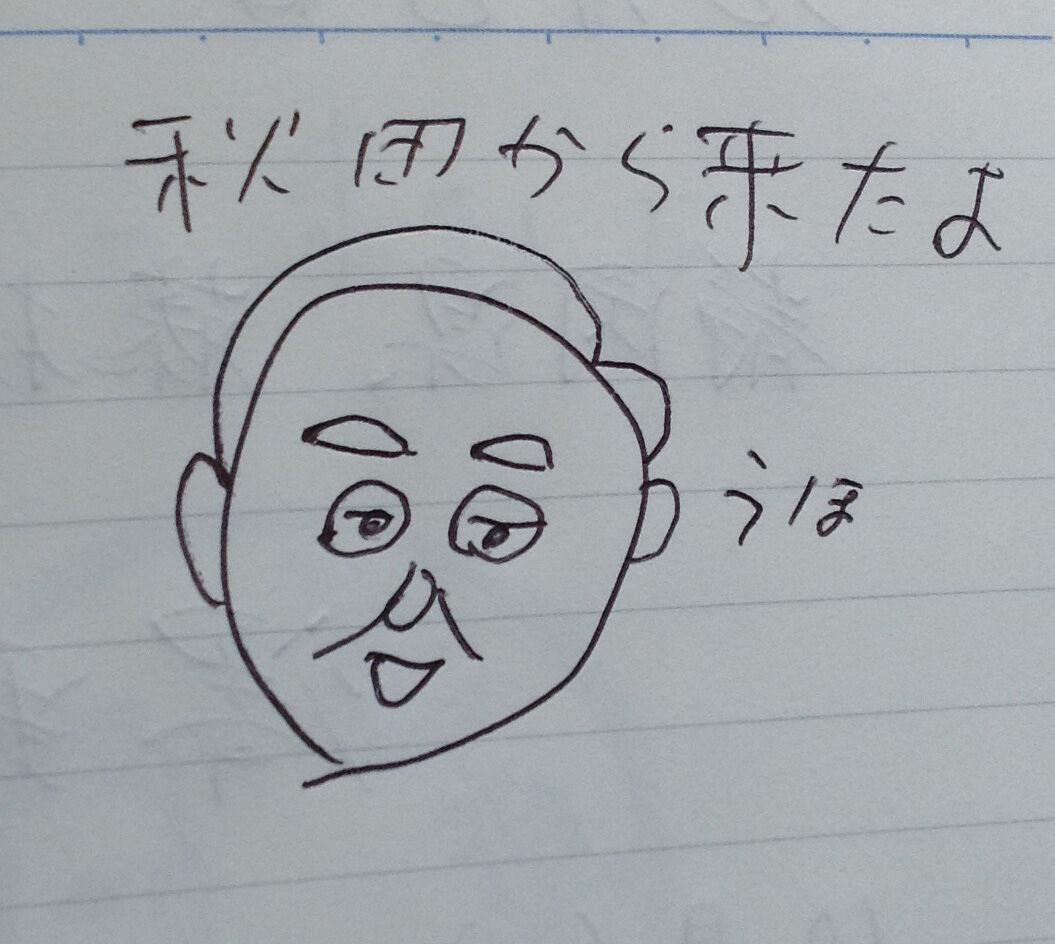 秋田から来たよ
うほ